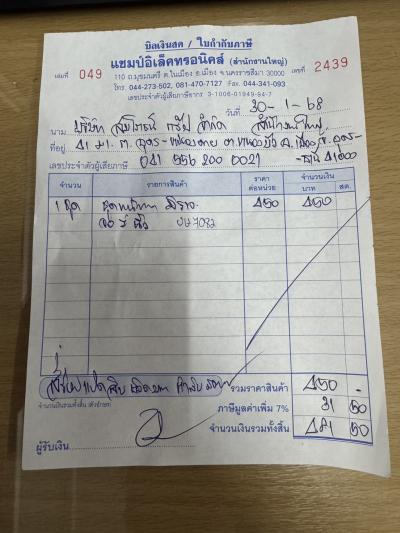 บิลเงินสด / ใบกำกับภาษี
แชมป์อิเล็คทรอนิคส์ (สำนักงานใหญ่)
เล่มที่ 049 110 ถ.มุขมนตรี ต.ในเมือง อ.เมือง จ.นครราชสีมา 30000 เลขที่ 2439
โทร. 044-273-502, 081-470-7127 Fax. 044-341-093
เลขประจำตัวผู้เสียภาษีอากร 3-1006-01949-94-7
วันที่ 30-1-68
นาม บริษัท กรุ๊ป จำกัด สำนักงานใหญ่
ที่อยู่ 41 ม.1 ถ. อุดร-หนองคาย ต.หมากแข้ง อ.เมือง จ.อุดร-
-ธานี 41000
เลขประจำตัวผู้เสียภาษี 041 556 200 0021
จำนวน รายการสินค้า ราคาต่อหน่วย จำนวนเงิน
บาท สต.
1 ชุด 450 450
รวมราคาสินค้า 450 -
จำนวนเงินรวมทั้งสิ้น (ตัวอักษร)
ภาษีมูลค่าเพิ่ม 7% 31 50
จำนวนเงินรวมทั้งสิ้น 481 50
ผู้รับเงิน